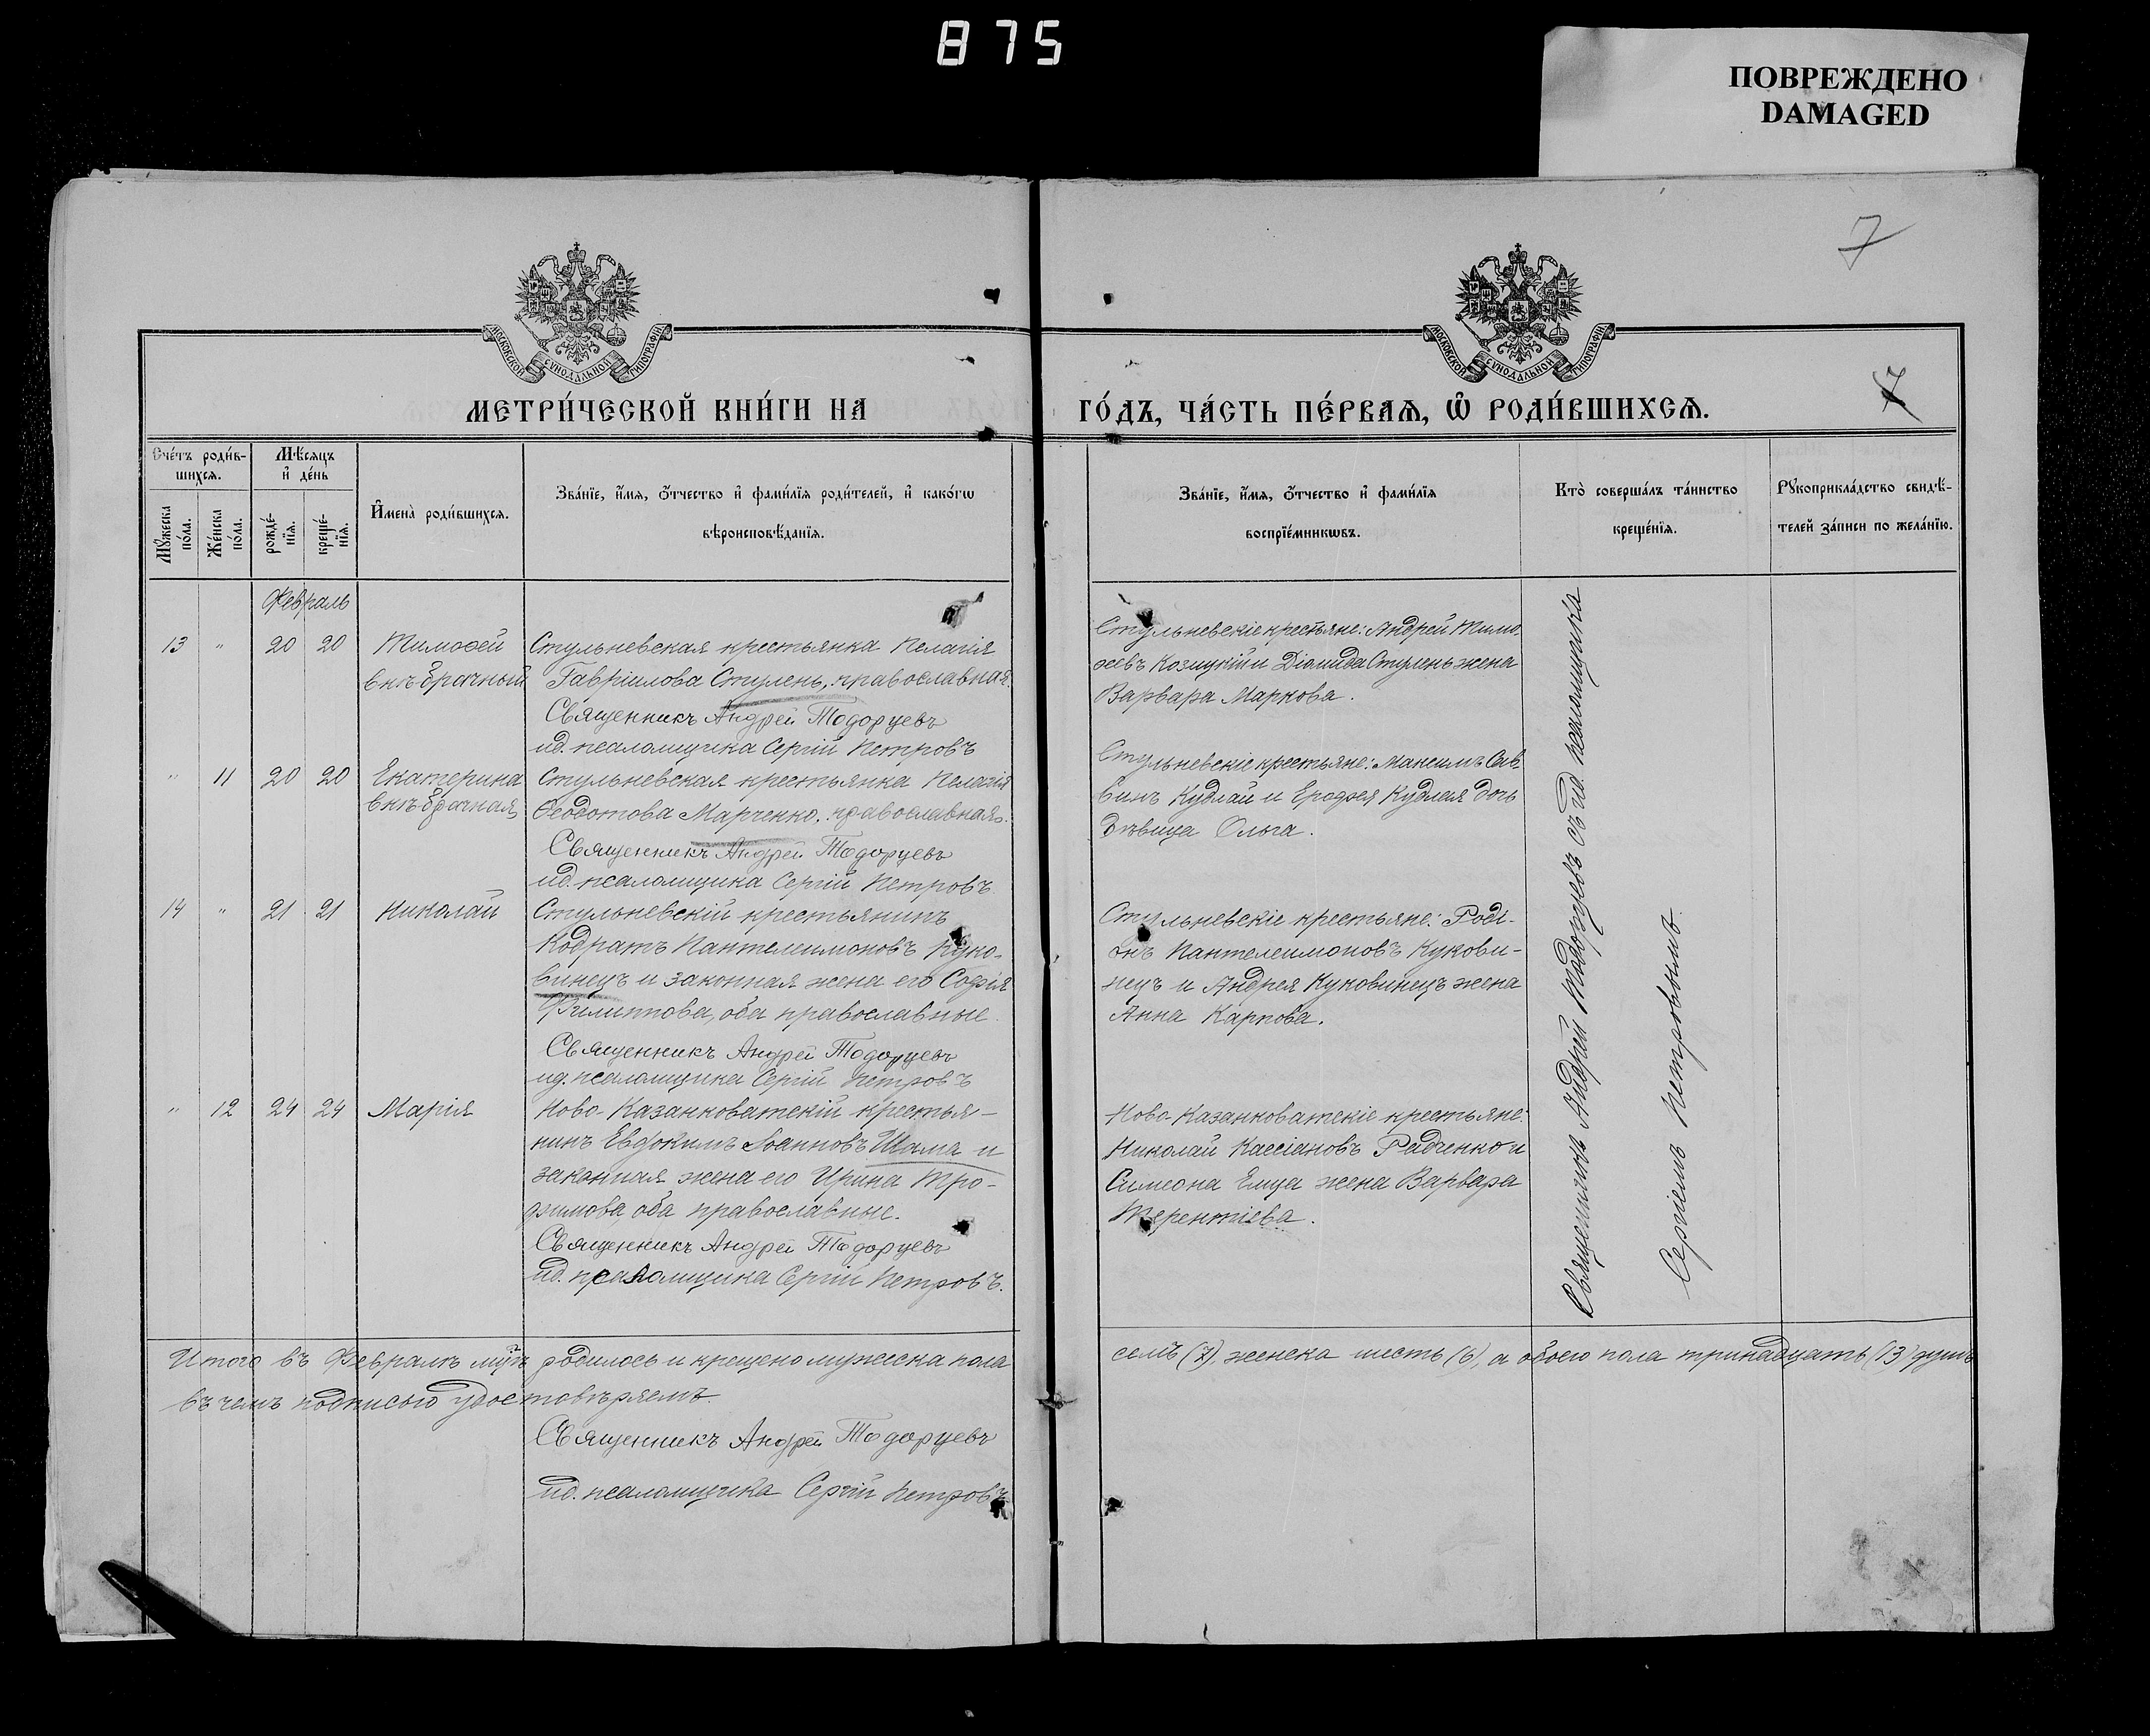 875
ПОВРЕЖДЕНО
DAMAGED
7
МОСКОВСКОЙ СѴНОДАЛЬНОЙ ТИПОГРАФІИ
МОСКОВСКОЙ СѴНОДАЛЬНОЙ ТИПОГРАФІИ
МЕТРИ́ЧЕСКОЙ КНИ́ГИ НА
ГО́ДЪ, ЧА́СТЬ ПЕ́РВАѦ, Ѽ РОДИ́ВШИХСѦ.
7
Сче́тъ роди́в-
шихсѧ.
Мꙋ́жеска по́ла.
Же́нска по́ла.
Мѣ́сѧцъ
и҆ де́нь
рожде́-
нїѧ.
креще́-
нїѧ.
И҆мена̀ роди́вшихсѧ.
Зва́нїе, и҆́мѧ, ѻ҆́тчество и҆ фами́лїѧ роди́телей, и҆ како́гѡ
вѣроисповѣ́данїѧ.
Зва́нїе, и҆́мѧ, ѻ҆́тчество и҆ фами́лїѧ
воспрїе́мникѡвъ.
Кто̀ соверша́лъ та́инство
креще́нїѧ.
Рꙋкоприкла́дство свидѣ́-
телей за́писи по жела́нїю.
Февраль
13 " 20 20 Тимофей
внѣбрачный
Стульневская крестьянка Пелагія
Гавріилова Стулень, православная.
Священникъ Андрей Тодорцевъ
ид. псаломщика Сергій Петровъ
Стульневскіе крестьяне: Андрей Тимо-
ѳеевъ Козицкій и Діомида Стулень жена
Варвара Маркова.
" 11 20 20 Екатерина
внѣбрачная
Стульневская крестьянка Пелагія
Ѳеодотова Марченко. православная.
Священникъ Андрей Тодорцевъ
ид. псаломщика Сергій Петровъ
Стульневскіе крестьяне: Максимъ Сав-
винъ Кудлай и Ерофея Кудлая дочь
дѣвица Ольга.
14 " 21 21 Николай
Стульневскій крестьянинъ
Кодратъ Пантелеимоновъ Куко-
винецъ и законная жена его Софія
Филиппова, оба православные.
Священникъ Андрей Тодорцевъ
ид. псаломщика Сергій Петровъ
Стульневскіе крестьяне: Роді-
онъ Пантелеимоновъ Кукови-
нецъ и Андрея Куковинецъ жена
Анна Карпова.
" 12 24 24 Марія
Ново-Казанковатскій крестья-
нинъ Евдокимъ Іоанновъ Шама и
законная жена его Ирина Тро-
фимова оба православные.
Священникъ Андрей Тодорцевъ
ид. псаломщика Сергій Петровъ.
Ново-Казанковатскіе крестьяне:
Николай Кассіановъ Радченко и
Симеона Емца жена Варвара
Терентіева.
Священникъ Андрей Тодорцевъ съ ид. псаломщика
Сергіемъ Петровымъ.
Итого въ Февралѣ мцѣ родилось и крещено мужеска пола
семь (7), женска шесть (6), а обоего пола тринадцать (13) душъ
въ чемъ подписью удостовѣряемъ.
Священникъ Андрей Тодорцевъ
ид. псаломщика Сергій Петровъ